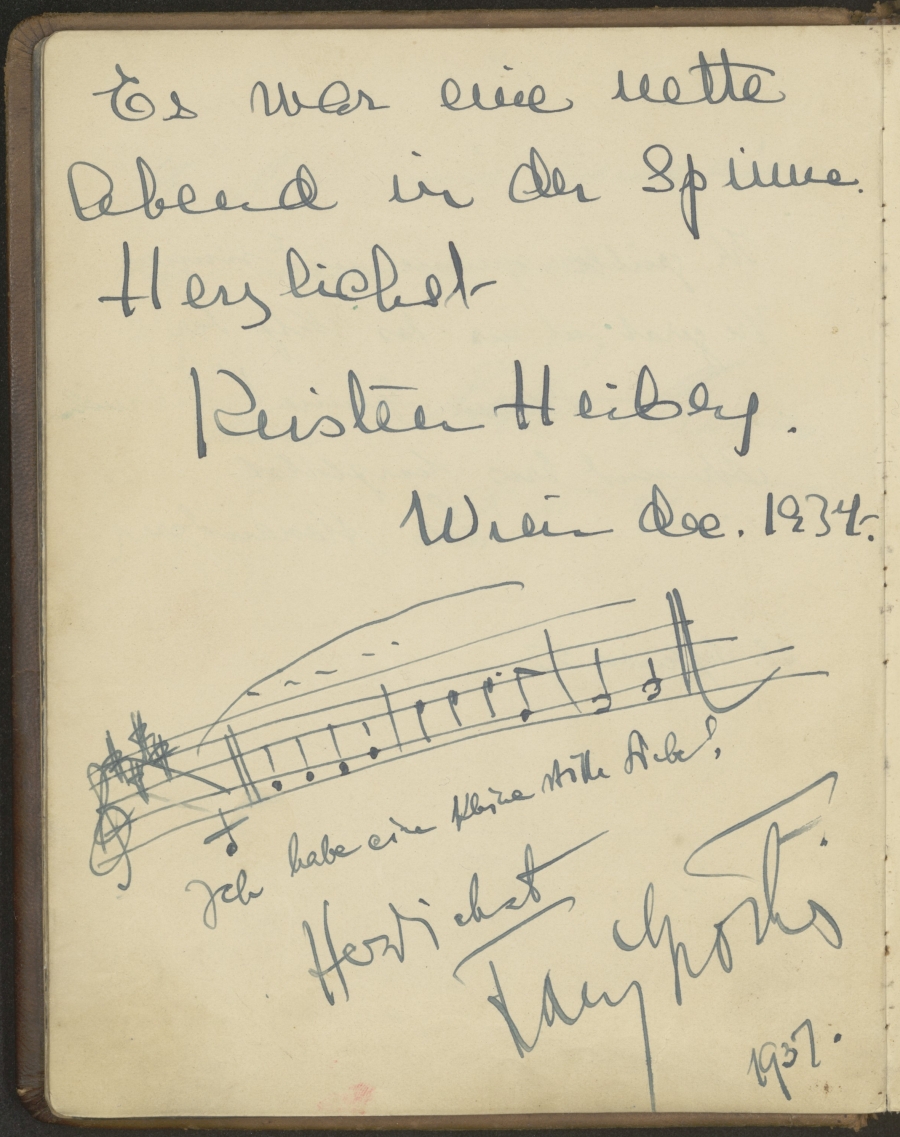 Es war eine nette
Abend in der Spinne.
Herzlichst
Kirsten Heiberg.
Wien dec. 1934.
Ich habe eine kleine stille Liebe!
Herzlichst
1937.